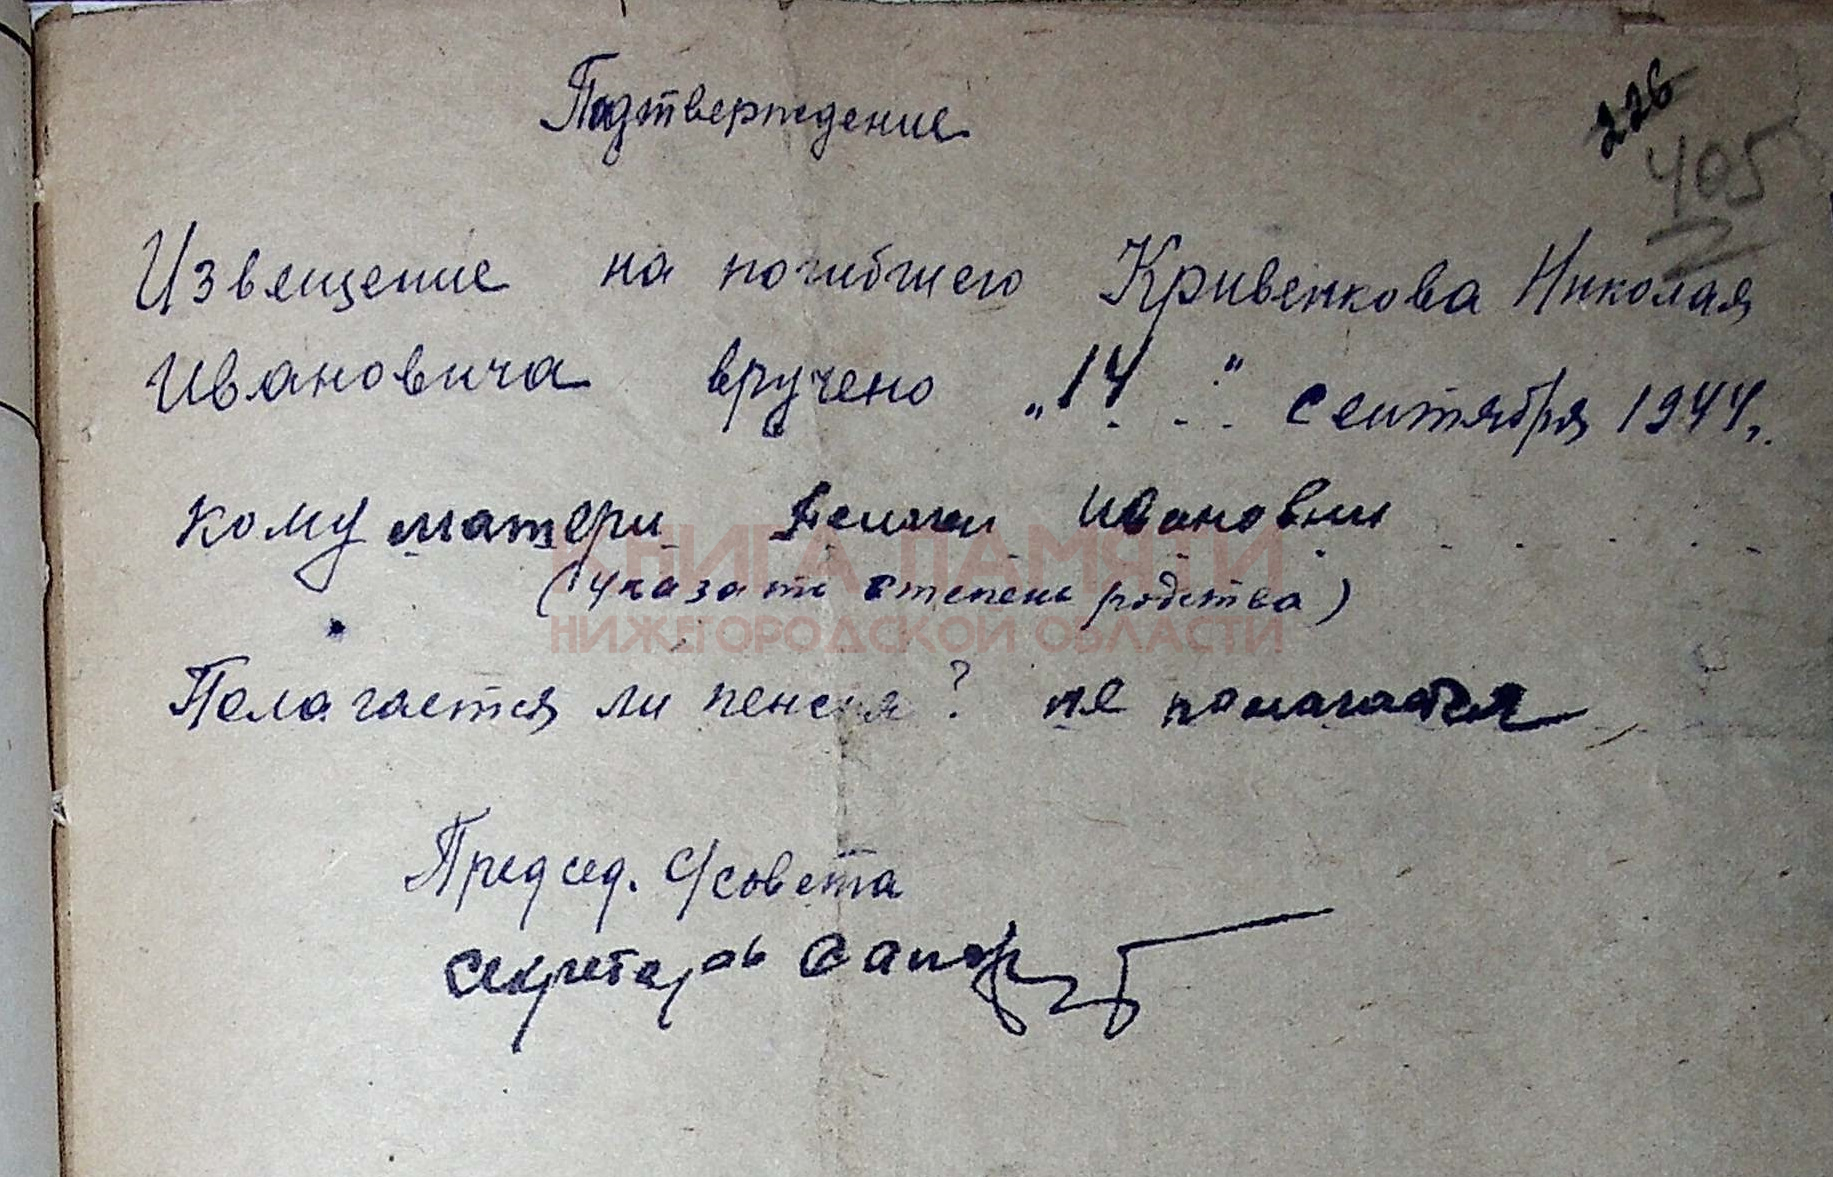 Подтверждение
226
405
Извещение на погибшего Кривенкова Николая
Ивановича вручено „14" сентября 1944 г.
кому матери Ивановни
(указать степень родства)
КНИГА ПАМЯТИ
НИЖЕГОРОДСКОЙ ОБЛАСТИ
Полагается ли пенсия? не полагается
Председ. с/совета
Секретарь